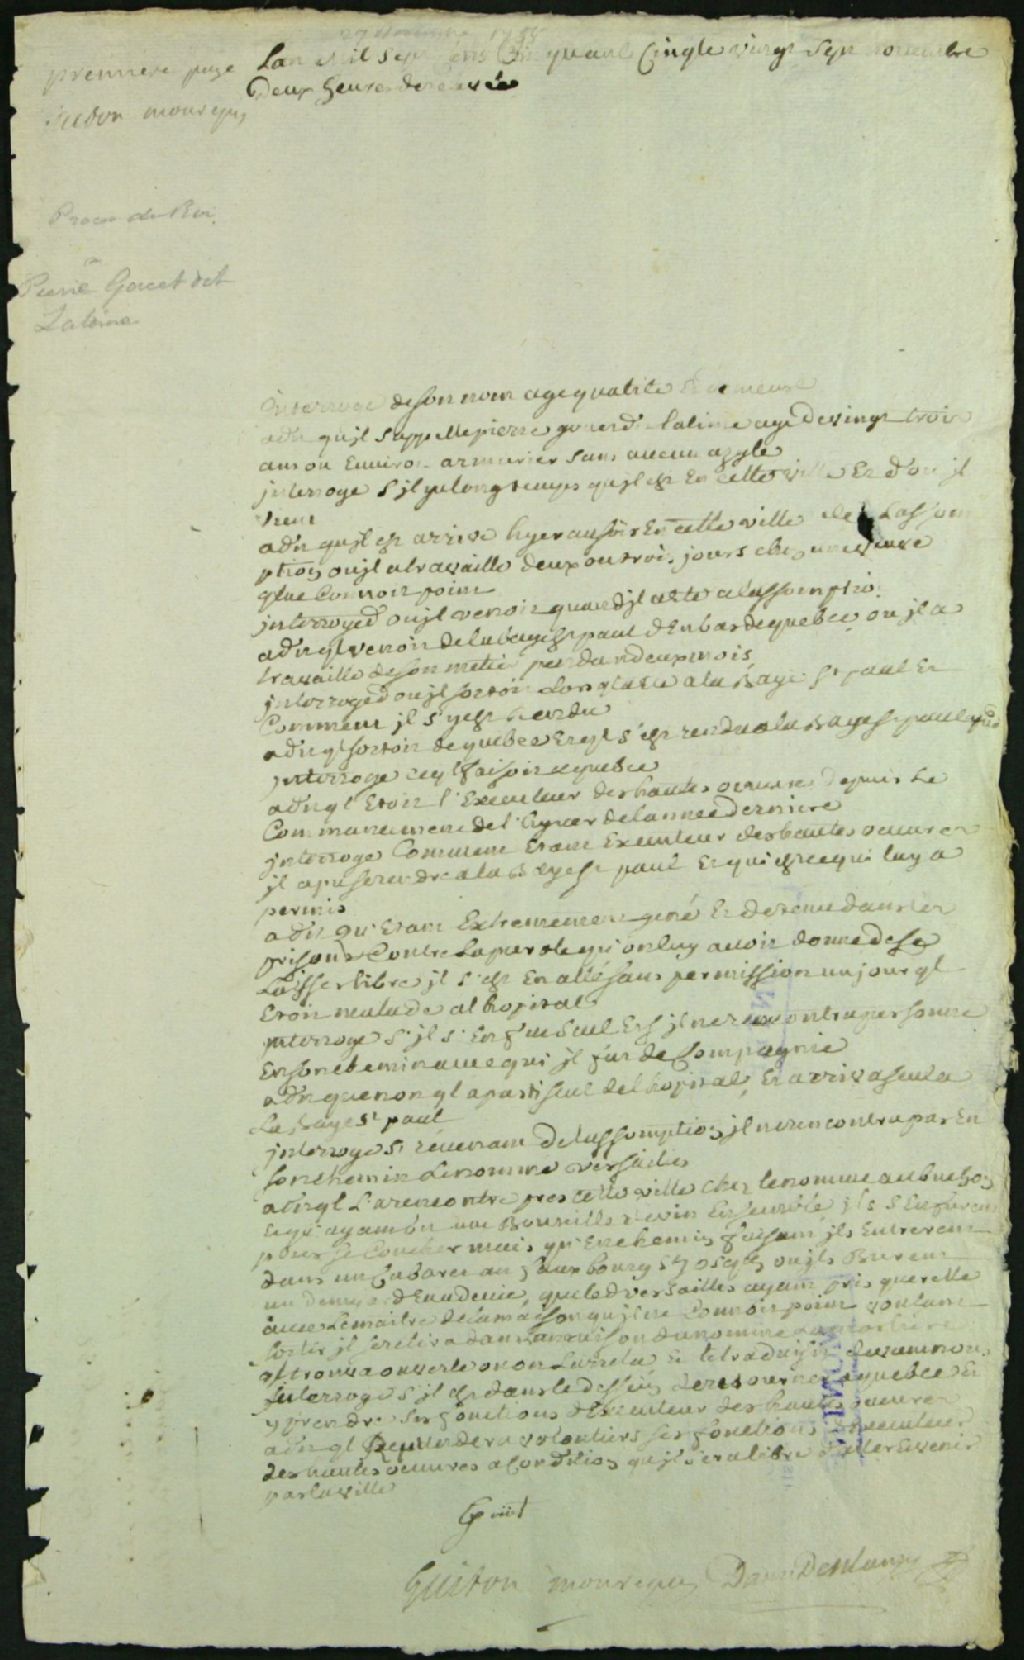 27 novembre 1755
Lan mil sept cens Cinquante Cinq le vingt Sept novembre
deux heures de relevée
premiere page
Guiton monrepos
Procr du Roi
Pierre Gouet dit
Lalime
interrogé de son nom age qualité et demeure
a dit qu'jl s'appelle pierre gouet dt lalime agé de vingt trois
ans ou Environ armurier sans aucun azyle
jnterrogé s'jl ya longtemps qu'jl est En cette ville Et d'ou jl
vient
a dit qu'jl est arrivé hyer au soir En cette ville de Lassom
ption ou jl a travaillé deux ou trois jours chez une veuve
qlne Connoit point
jnterrogé d'ou jl venoit quand jl a été a lassomption
a dit ql venoit de la baye st paul d'En bas de quebec ou jl a
travaillé de son metier pendant deux mois
jnterrogé d'ou jl sortoit Lorsqla été a la Baye st paul Et
Comment jl s'y est rendu
a dit ql sortoit de quebec Et ql s'est rendu a la Baye st paul a pied
jnterrogé ce ql faisoit a quebec
a dit ql Etoit l'Executeur des hautes oeuvres depuis Le
Commancement de l'hyver de lannée derniere
jnterrogé Comment Etant Executeur des hautes oeuvres
jl a pu se rendre a la Baye st paul Et qui est ce qui luy a
permis
a dit qu'Etant Extremement gené Et detenu dans les
prisons Contre La parole qu'on luy avoit donné de le
Laisser libre jl s'est En allé sans permission un jour ql
Etoit malade a l hopital
jnterrogé s'jl s'En fut Seul Et s'jl ne rencontra personne
En son chemin avec qui jl fut de Compagnie
a dit que non ql a parti seul de l hopital Et arriva seul a
La baye st paul
jnterrogé si revenant de lassomption jl ne rencontra pas En
son chemin Le nommé versailles
a dit ql L'a rencontré pres cette ville chez le nommé aubuchon
Et qu'ayant bu une Bouteille de vin Ensemble jls s'En furent
pour se Coucher mais qu'En chemin faisant jls Entrerent
dans un Cabaret au faux bourg st joseph ou jls Burent
un demyard d'Eau de vie, que led versailles ayant pris querelle
avec Le maitre de la maison qu'jl ne Connoit point voulant
sortir jl se retira dans la maison du nommé
ql trouva ouverte ou on Larreta Et le traduisit devant nous
jnterrogé s'jl est dans le dessein de retourner a quebec Et
y prendre ses fonctions d'Executeur des hautes oeuvres
a dit ql Reprendera volontiers ses fonctions d'Executeur
des hautes oeuvres a Condition qu'jl sera libre d'aller Et venir
par la ville
Guiton monrepos Danré DeBlanzy